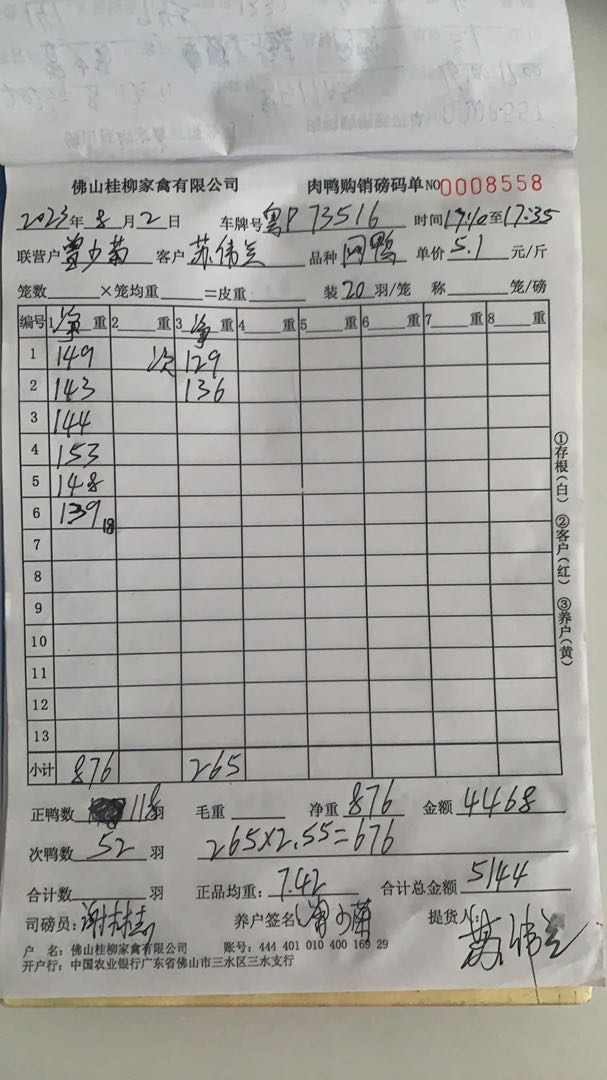 佛山桂柳家禽有限公司 肉鸭购销磅码单 NO0008558
2023年8月2日 车牌号粤P73516 时间17:10至17:35
联营户 客户苏伟兰 品种 单价5.1元/斤
笼数 ×笼均重 =皮重 装20羽/笼 称 笼/磅
编号 1净重 2重 3净重 4重 5重 6重 7重 8重
1 149 次129
2 143 136
3 144
4 153
5 148
6 139 18
7
8
9
10
11
12
13
小计 876 265
①存根(白) ②客户(红) ③养户(黄)
正鸭数118羽 毛重 净重876 金额4468
次鸭数52羽 265×2.55=676
合计数 羽 正品均重:7.42 合计总金额5144
司磅员: 养户签名 提货人:苏伟兰
户 名:佛山桂柳家禽有限公司 账号:444 401 010 400 169 29
开户行:中国农业银行广东省佛山市三水区三水支行